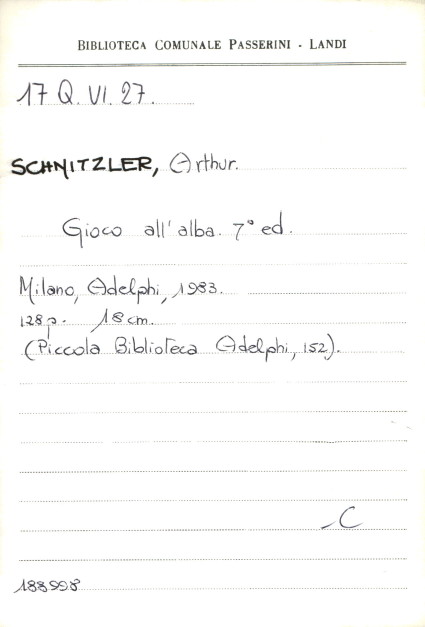 BIBLIOTECA COMUNALE PASSERINI - LANDI
17 Q. VI. 27.
SCHNITZLER, Arthur.
Gioco all'alba. 7° ed.
Milano, Adelphi, 1983.
128 p. 18 cm.
(Piccola Biblioteca Adelphi, 152).
- C
188998